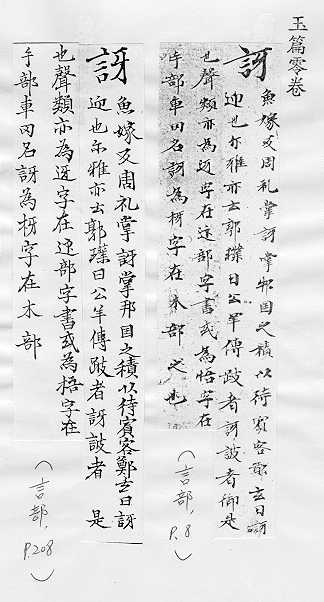 玉篇零卷
訝 魚嫁反周礼掌訝掌邦国之積以待賓客鄭玄曰訝
迎也尓雅亦云郭璞曰公羊傳跛者訝跛者仰是
也聲類亦為迓字在辵部字書或為悟字在
手部車罔名訝為枒字在木部之也
(言部, P.8)
訝 魚嫁反周礼掌訝掌邦国之積以待賓客鄭玄曰訝
迎也尓雅亦云郭璞曰公羊傳跛者訝跛者 是
也聲類亦為迓字在辵部字書或為捂字在
手部車罔名訝為枒字在木部
(言部, P.208)